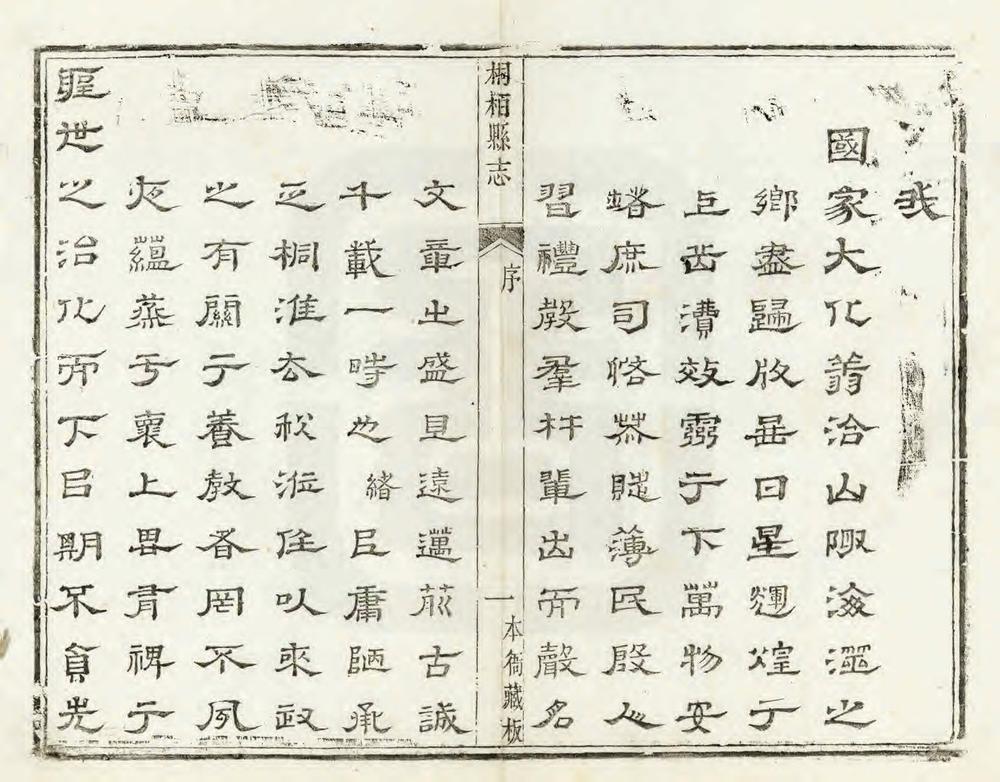 我
國家大化蓊洽山陬海澨之
鄉盡歸版啚日星輝煌于
上岳瀆效靈于下萬物安
堵庶司恪恭賦薄民殷人
習禮教羣材輩出而聲名
桐柏縣志
序
一
本衙藏板
文章之盛見遠邁前古誠
千載一時也緒臣庸陋承
乏桐淮去秋涖任以來政
之有關于養教者罔不夙
夜蘊蒸于上思有裨于
聖世之治化而下㠯期不負先